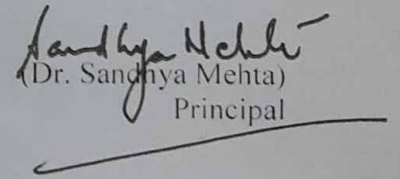 Sandhya Mehta
(Dr. Sandhya Mehta)
Principal